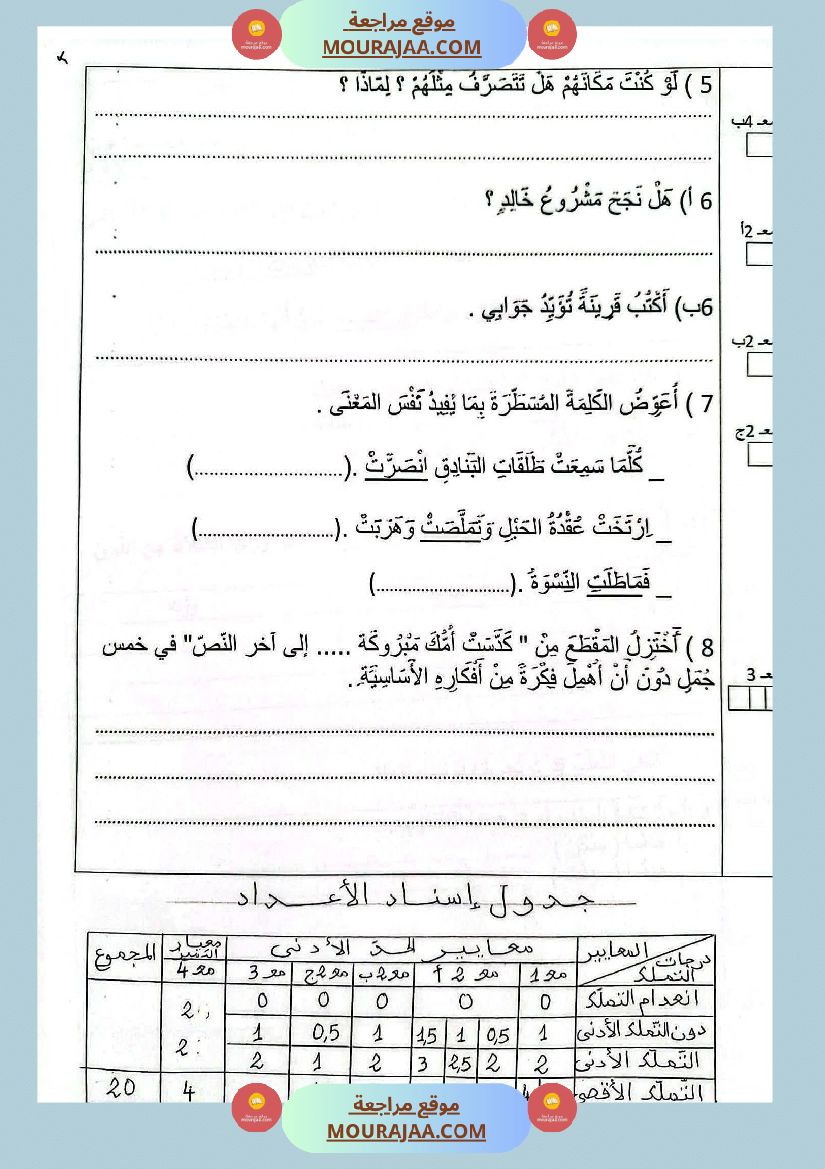 موقع مراجعة
MOURAJAA.COM
5 ) لَوْ كُنْتَ مَكَانَهُمْ هَلْ تَتَصَرَّفُ مِثْلَهُمْ ؟ لِمَاذَا ؟
معـ 4ب
6 أ) هَلْ نَجَحَ مَشْرُوعُ خَالِدٍ ؟
معـ 2أ
6ب) أَكْتُبُ قَرِينَةً تُؤَيِّدُ جَوَابِي .
معـ 2ب
7 ) أُعَوِّضُ الكَلِمَةَ المُسَطَّرَةَ بِمَا يُفِيدُ نَفْسَ المَعْنَى .
معـ 2ج
_ كُلَّمَا سَمِعَتْ طَلَقَاتِ البَنَادِقِ انْصَرَّتْ .(..............................)
_ اِرْتَخَتْ عُقْدَةُ الحَبْلِ وَتَمَلَّصَتْ وَهَرَبَتْ .(...........................)
_ فَمَاطَلَتِ النِّسْوَةُ .(...........................)
8 ) أَخْتَزِلُ المَقْطَعَ مِنْ " كَدَّسَتْ أُمُّكَ مَبْرُوكَة ..... إلى آخر النّصّ" في خمس
جُمَلٍ دُونَ أَنْ أُهْمِلَ فِكْرَةً مِنْ أَفْكَارِهِ الأَسَاسِيَّةِ .
معـ 3
جدول إسناد الأعداد
المعايير درجات التملك معايير الحدّ الأدنى معيار التميز المجموع
معـ 1 معـ 2 أ معـ 2ب معـ 2ج معـ 3 معـ 4
انعدام التملّك 0 0 0 0 0
دون التّملك الأدنى 1 0,5 1 1,5 1 0,5 1 2
التّملّك الأدنى 2 2 2,5 3 2 1 2 2
التّملّك الأقصى 4 4 20
موقع مراجعة
MOURAJAA.COM